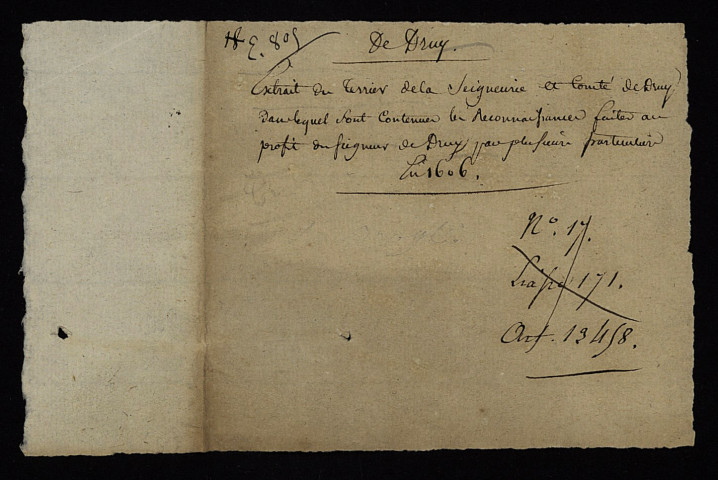 18 E. 805
De Druy.
Extrait du Terrier de la Seigneurie et Comté de Druy
Dans lequel Sont Contenues les Reconnaissances faites au
profit du Seigneur de Druy par plusieurs particuliers
En 1606.
N°. 17.
Liasse 171.
Art. 13458.